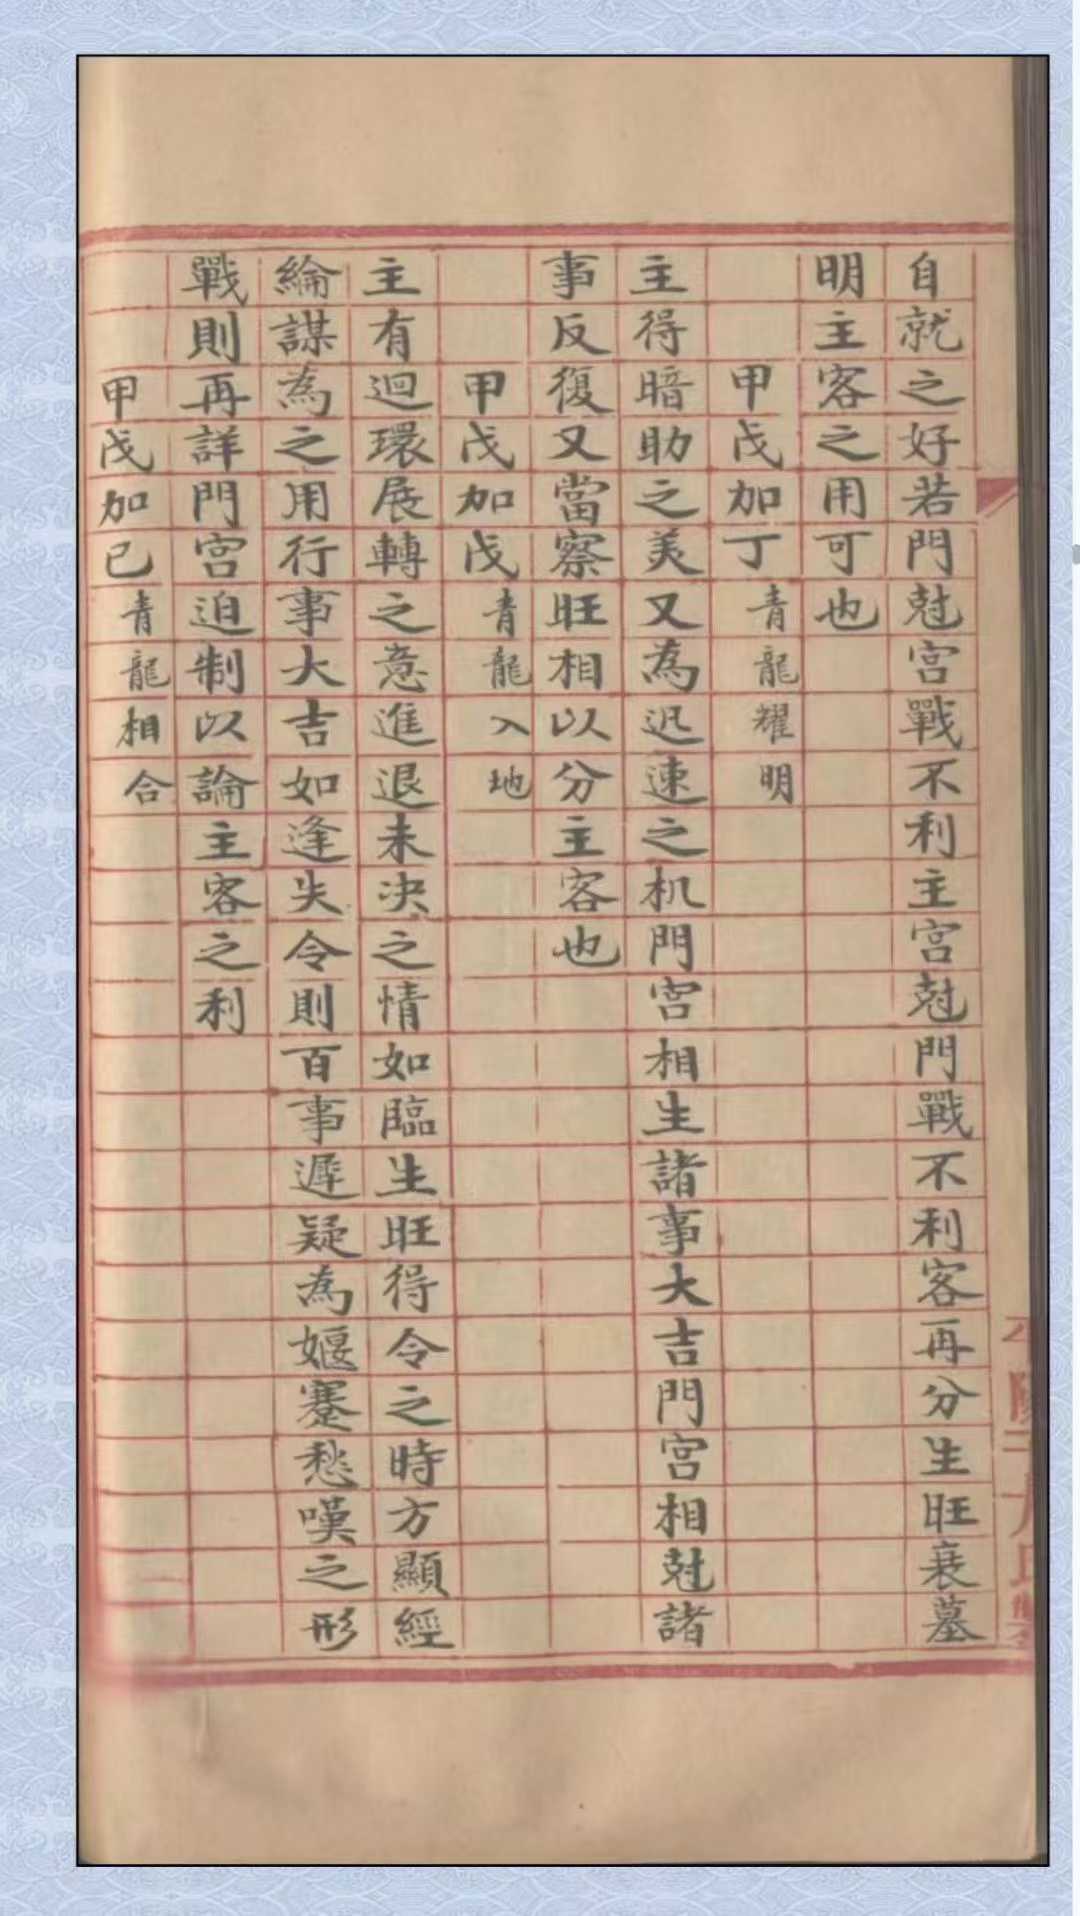 自就之好若門尅宮戰不利主宮尅門戰不利客再分生旺衰墓
明主客之用可也
甲戊加丁青龍耀明
主得暗助之美又為迅速之机門宮相生諸事大吉門宮相尅諸
事反復又當察旺相以分主客也
甲戊加戊青龍入地
主有迴環展轉之意進退未決之情如臨生旺得令之時方顯經
綸謀為之用行事大吉如逢失令則百事遲疑為㜸蹇愁嘆之形
戰則再詳門宮迫制以論主客之利
甲戊加已青龍相合